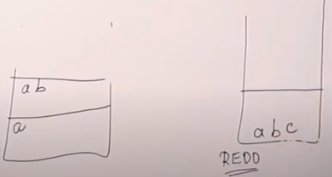 ab
a
abc
REDO